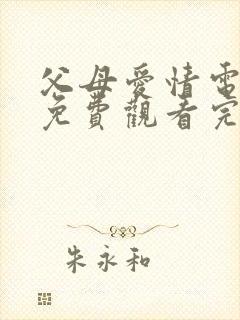 父母愛情電
免費觀看完
朱永和